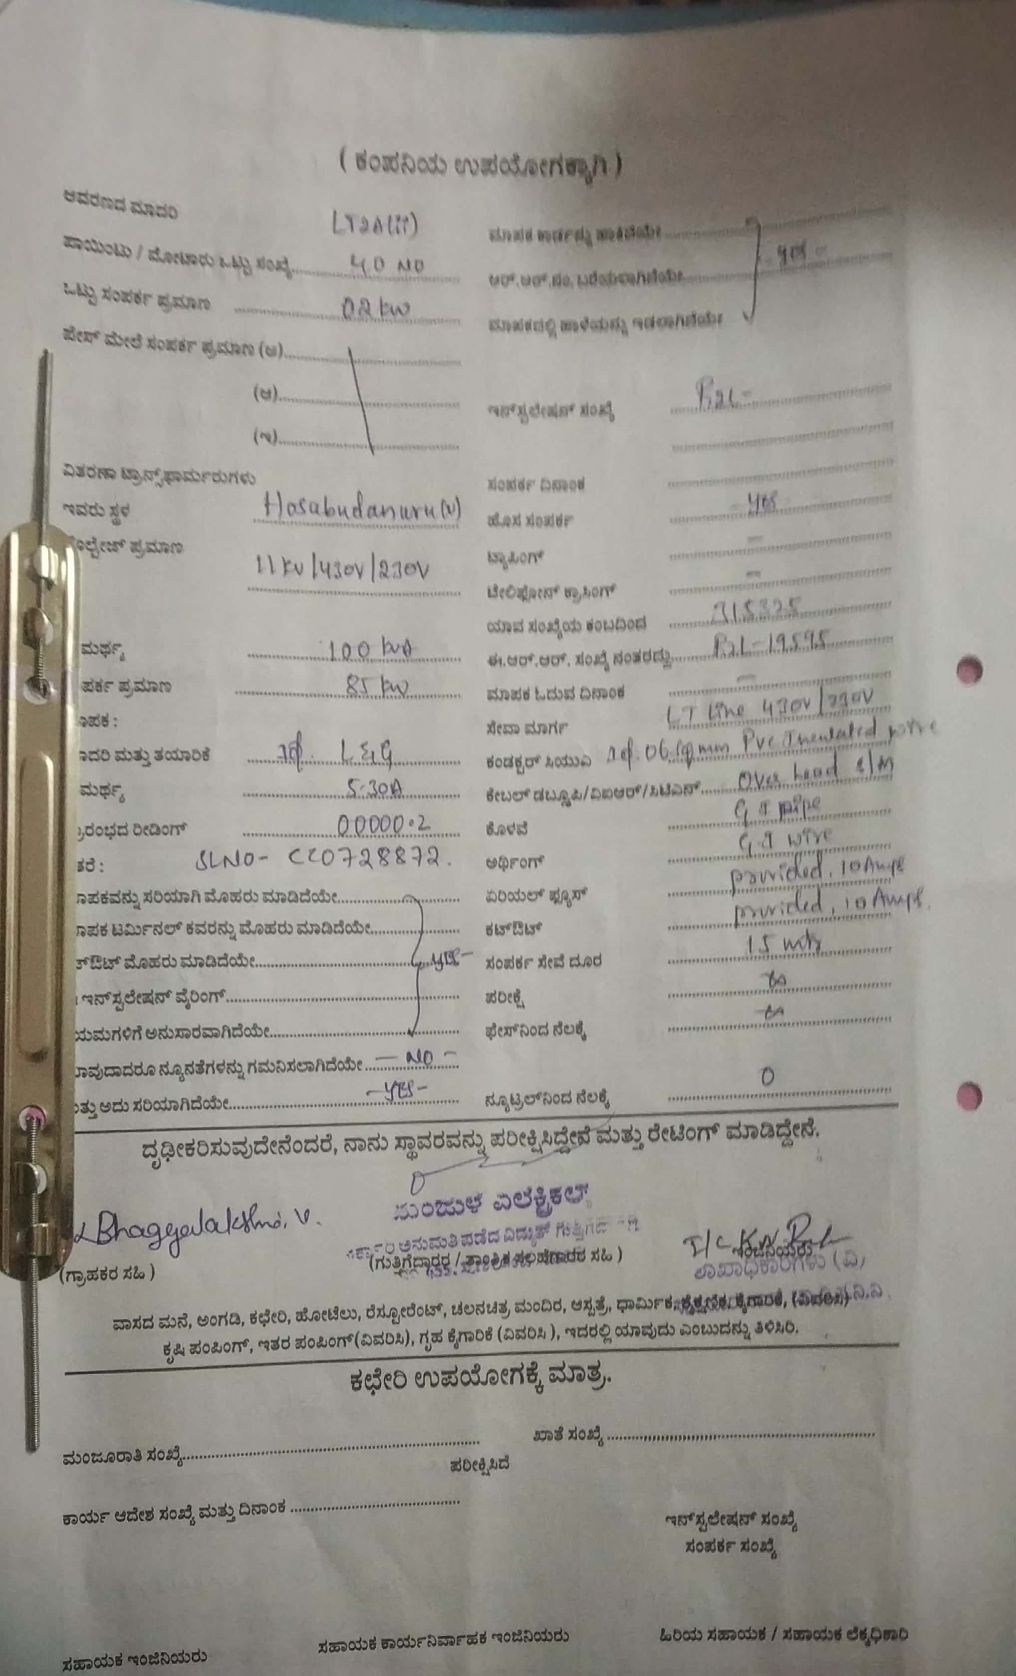 ( ಕಂಪನಿಯ ಉಪಯೋಗಕ್ಕಾಗಿ )
ಆವರಣದ ಮಾದರಿ LT2A(ii)
ಪಾಯಿಂಟು / ಮೋಟಾರು ಒಟ್ಟು ಸಂಖ್ಯೆ 40 NO
ಒಟ್ಟು ಸಂಪರ್ಕ ಪ್ರಮಾಣ 02 kw
ಪೇಸ್ ಮೇಲೆ ಸಂಪರ್ಕ ಪ್ರಮಾಣ (ಅ)
(ಆ)
(ಇ)
ವಿತರಣಾ ಟ್ರಾನ್ಸ್‌ಫಾರ್ಮರುಗಳು
ಇವರು ಸ್ಥಳ Hosabudanuru (V)
ವೋಲ್ಟೇಜ್ ಪ್ರಮಾಣ
11 KV / 430V / 230V
ಮರ್ಥ್ಯ 100 kVA
ಪರ್ಕ ಪ್ರಮಾಣ 85 kw
ಾಪಕ :
ಾದರಿ ಮತ್ತು ತಯಾರಿಕೆ L&G
ಮರ್ಥ್ಯ 5-30A
ರಂಭದ ರೀಡಿಂಗ್ 00000.2
ತರೆ : SLNO- CC0728872.
ಾಪಕವನ್ನು ಸರಿಯಾಗಿ ಮೊಹರು ಮಾಡಿದೆಯೇ
ಾಪಕ ಟರ್ಮಿನಲ್ ಕವರನ್ನು ಮೊಹರು ಮಾಡಿದೆಯೇ
ಟ್‌ಔಟ್ ಮೊಹರು ಮಾಡಿದೆಯೇ yes
ಇನ್‌ಸ್ಟಲೇಷನ್ ವೈರಿಂಗ್
ಯಮಗಳಿಗೆ ಅನುಸಾರವಾಗಿದೆಯೇ
ಾವುದಾದರೂ ನ್ಯೂನತೆಗಳನ್ನು ಗಮನಿಸಲಾಗಿದೆಯೇ - NO -
ತ್ತು ಅದು ಸರಿಯಾಗಿದೆಯೇ -yes-
ಮಾಪಕ ಕಾರ್ಡನ್ನು ಹಾಕಿದೆಯೇ
ಆರ್.ಆರ್.ನಂ. ಬರೆಯಲಾಗಿದೆಯೇ yes -
ಮಾಪಕದಲ್ಲಿ ಹಾಳೆಯನ್ನು ಇಡಲಾಗಿದೆಯೇ
ಇನ್‌ಸ್ಟಲೇಷನ್ ಸಂಖ್ಯೆ
ಸಂಪರ್ಕ ದಿನಾಂಕ
ಹೊಸ ಸಂಪರ್ಕ yes
ಟ್ಯಾಪಿಂಗ್ -
ಟೇಲಿಫೋನ್ ಕ್ರಾಸಿಂಗ್ -
ಯಾವ ಸಂಖ್ಯೆಯ ಕಂಬದಿಂದ 315325
ಈ.ಆರ್.ಆರ್. ಸಂಖ್ಯೆ ನಂತರದ್ದು
ಮಾಪಕ ಓದುವ ದಿನಾಂಕ -
ಸೇವಾ ಮಾರ್ಗ LT Line 430V/230V
ಕಂಡಕ್ಟರ್ ಸಿಯುಎ 06 sqmm Pvc Insulated wire
ಕೇಬಲ್ ಡಬ್ಲ್ಯೂಪಿ/ವಿಐಆರ್/ಸಿಟಿಎಸ್ Over head
ಕೊಳವೆ G I pipe
ಅರ್ಥಿಂಗ್ G.I wire
ಏರಿಯಲ್ ಫ್ಯೂಸ್ provided, 10 Amps
ಕಟ್‌ಔಟ್ provided, 10 Amps.
ಸಂಪರ್ಕ ಸೇವೆ ದೂರ 15 mts
ಪರೀಕ್ಷೆ
ಫೇಸ್‌ನಿಂದ ನೆಲಕ್ಕೆ
ನ್ಯೂಟ್ರಲ್‌ನಿಂದ ನೆಲಕ್ಕೆ 0
ದೃಢೀಕರಿಸುವುದೇನೆಂದರೆ, ನಾನು ಸ್ಥಾವರವನ್ನು ಪರೀಕ್ಷಿಸಿದ್ದೇನೆ ಮತ್ತು ರೇಟಿಂಗ್ ಮಾಡಿದ್ದೇನೆ.
ಮಂಜುಳ ಎಲೆಕ್ಟ್ರಿಕಲ್
Bhagyalakshmi. V.
ಅನುಮತಿ ಪಡೆದ ವಿದ್ಯುತ್
(ಗ್ರಾಹಕರ ಸಹಿ )
(ಗುತ್ತಿಗೆದಾರರ / ತಾಂತ್ರಿಕ ಸಲಹೆಗಾರರ ಸಹಿ )
ಇಂಜಿನಿಯರು
ಶಾಖಾಧಿಕಾರಿಗಳು (ವಿ)
ವಾಸದ ಮನೆ, ಅಂಗಡಿ, ಕಛೇರಿ, ಹೋಟೆಲು, ರೆಸ್ಟೋರೆಂಟ್, ಚಲನಚಿತ್ರ ಮಂದಿರ, ಆಸ್ಪತ್ರೆ, ಧಾರ್ಮಿಕ, ಶೈಕ್ಷಣಿಕ, ಕೈಗಾರಿಕೆ, (ವಿವರಿಸಿ)
ಕೃಷಿ ಪಂಪಿಂಗ್, ಇತರ ಪಂಪಿಂಗ್ (ವಿವರಿಸಿ), ಗೃಹ ಕೈಗಾರಿಕೆ (ವಿವರಿಸಿ ), ಇದರಲ್ಲಿ ಯಾವುದು ಎಂಬುದನ್ನು ತಿಳಿಸಿರಿ.
ಕಛೇರಿ ಉಪಯೋಗಕ್ಕೆ ಮಾತ್ರ.
ಮಂಜೂರಾತಿ ಸಂಖ್ಯೆ
ಖಾತೆ ಸಂಖ್ಯೆ
ಪರೀಕ್ಷಿಸಿದೆ
ಕಾರ್ಯ ಆದೇಶ ಸಂಖ್ಯೆ ಮತ್ತು ದಿನಾಂಕ
ಇನ್‌ಸ್ಟಲೇಷನ್ ಸಂಖ್ಯೆ
ಸಂಪರ್ಕ ಸಂಖ್ಯೆ
ಸಹಾಯಕ ಇಂಜಿನಿಯರು
ಸಹಾಯಕ ಕಾರ್ಯನಿರ್ವಾಹಕ ಇಂಜಿನಿಯರು
ಹಿರಿಯ ಸಹಾಯಕ / ಸಹಾಯಕ ಲೆಕ್ಕಧಿಕಾರಿ